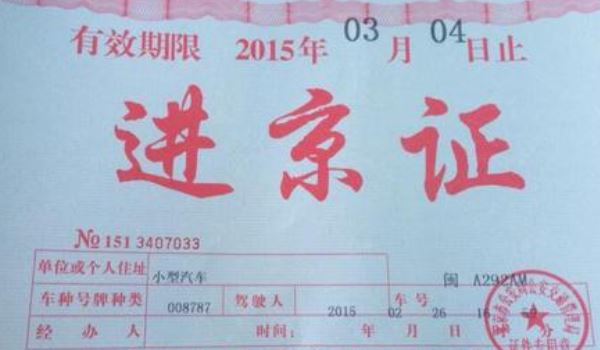 有效期限 2015年 03 月 04 日止
进京证
№ 151 3407033
单位或个人住址 小型汽车 闽 A292AM
车种号牌种类 008787 驾驶人 车号
2015 02 26 16
经办人 时间: 年 月 日 分